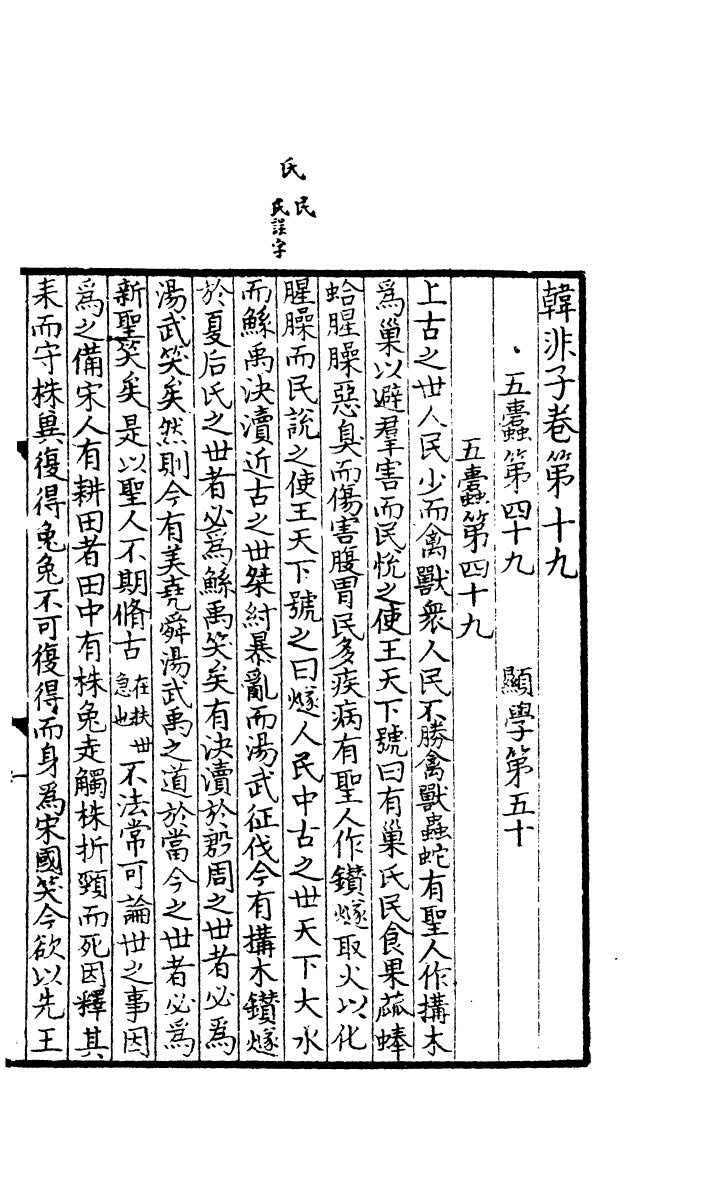 氏
民
民誤字
韓非子卷第十九
五蠹第四十九　顯學第五十
五蠹第四十九
上古之世人民少而禽獸衆人民不勝禽獸蟲蛇有聖人作搆木
爲巢以避羣害而民悅之使王天下號曰有巢氏民食果蓏蜯
蛤腥臊惡臭而傷害腹胃民多疾病有聖人作鑚燧取火以化
腥臊而民說之使王天下號之曰燧人民中古之世天下大水
而鯀禹決瀆近古之世桀紂暴亂而湯武征伐今有搆木鑚燧
於夏后氏之世者必爲鯀禹笑矣有決瀆於殷周之世者必爲
湯武笑矣然則今有美堯舜湯武禹之道於當今之世者必爲
新聖笑矣是以聖人不期脩古在扶世急也不法常可論世之事因
爲之備宋人有耕田者田中有株兔走觸株折頸而死因釋其
耒而守株兾復得兔兔不可復得而身爲宋國笑今欲以先王